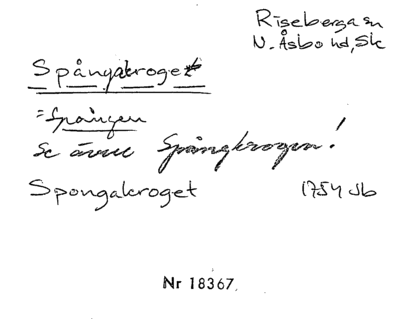 Riseberga sn
N. Åsbo hd, Sk
Spångakroget
= Spången
Se även Spångkrogen!
Spongakroget 1754 Jb
Nr 18367.